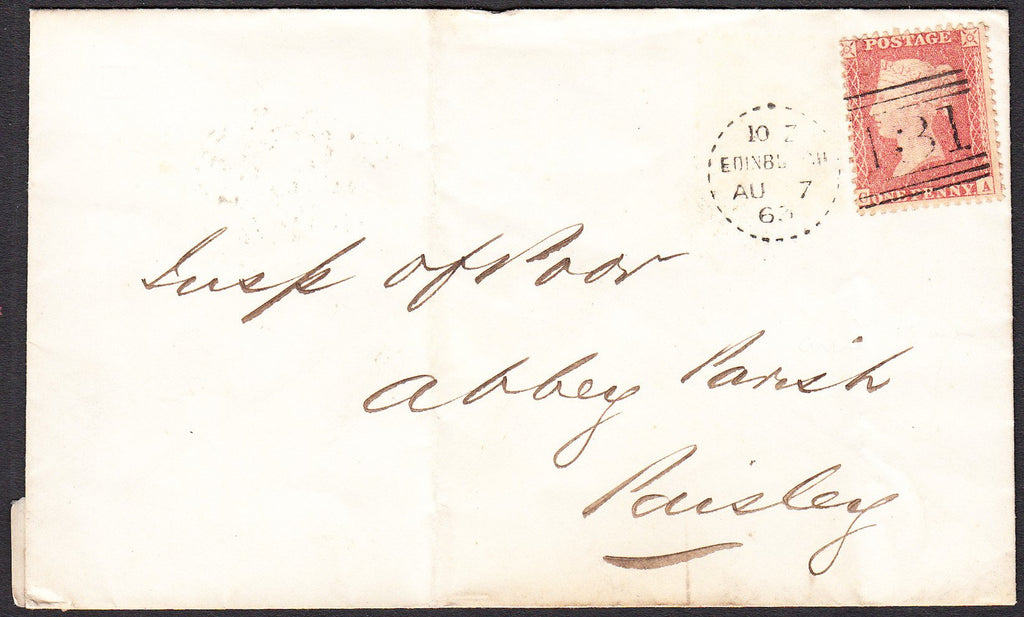 POSTAGE
1:31
G ONE PENNY A
10 Z
EDINBURGH
AU 7
63
Insp of Poor
Abbey Parish
Paisley